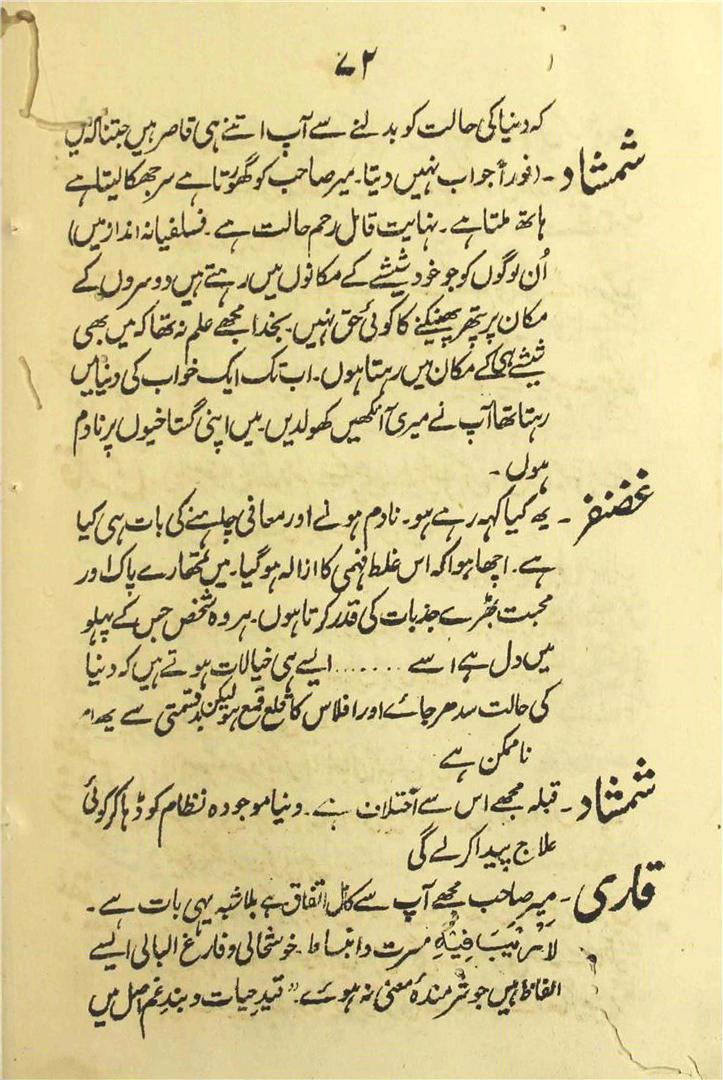 ۷۲
کہ دنیا کی حالت کو بدلنے سے آپ اتنے ہی قاصر ہیں جتنا کہ میں
شمشاد - (فوراً جواب نہیں دیتا۔ میر صاحب کو گھورتا ہے سر جھکا لیتا ہے
ہاتھ ملتا ہے۔ نہایت قابل رحم حالت ہے۔ فسلفیانہ انداز میں)
اُن لوگوں کو جو خود شیشے کے مکانوں میں رہتے ہیں دوسروں کے
مکان پر پتھر پھینکنے کا کوئی حق نہیں۔ بخدا مجھے علم نہ تھا کہ میں بھی
شیشے ہی کے مکان میں رہتا ہوں۔ اب تک ایک خواب کی دنیا میں
رہتا تھا آپ نے میری آنکھیں کھولدیں۔ میں اپنی گستاخیوں پر نادم
ہوں۔
غضنفر - یہ کیا کہہ رہے ہو۔ نادم ہونے اور معافی چاہنے کی بات ہی کیا
ہے۔ اچھا ہوا کہ اس غلط فہمی کا ازالہ ہو گیا۔ میں تمھارے پاک اور
محبت بھرے جذبات کی قدر کرتا ہوں۔ ہر وہ شخص جس کے پہلو
میں دل ہے اسے ....... ایسے ہی خیالات ہوتے ہیں کہ دنیا
کی حالت سدھر جائے اور افلاس کا قلع قمع ہو لیکن بدقسمتی سے یہ امر
ناممکن ہے
شمشاد - قبلہ مجھے اس سے اختلاف ہے۔ دنیا موجودہ نظام کو ڈہا کر کوئی
علاج پیدا کرلے گی
قاری - میر صاحب مجھے آپ سے کامل اتفاق ہے بلا شبہ یہی بات ہے۔
لَا رَیْبَ فِیْہِ مسرت و انبساط۔ خوشحالی و فارغ البالی ایسے
الفاظ ہیں جو شرمندۂ معنی نہ ہوئے۔ "قید حیات و بند غم اصل میں